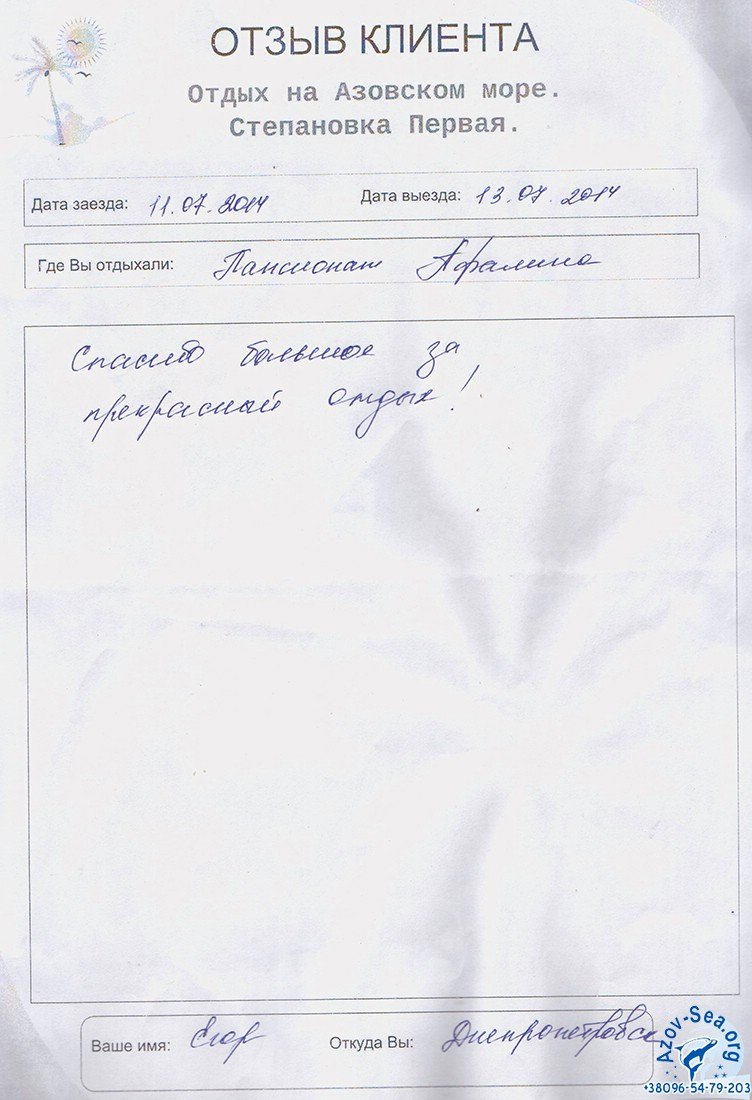 ОТЗЫВ КЛИЕНТА
Отдых на Азовском море.
Степановка Первая.
Дата заезда: 11.07.2014 Дата выезда: 13.07.2014
Где Вы отдыхали: Пансионат Афалина
Спасибо большое за
прекрасный отдых!
Ваше имя: Егор Откуда Вы: Днепропетровск
Azov-Sea.org
+38096-54-79-203